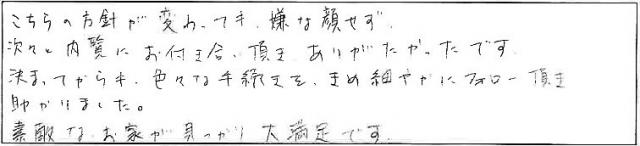 こちらの方針が変わっても、嫌な顔せず、
次々と内覧にお付き合い頂き、ありがたかったです。
決まってからも、色々な手続きを、きめ細やかにフォロー頂き
助かりました。
素敵なお家が見つかり大満足です。